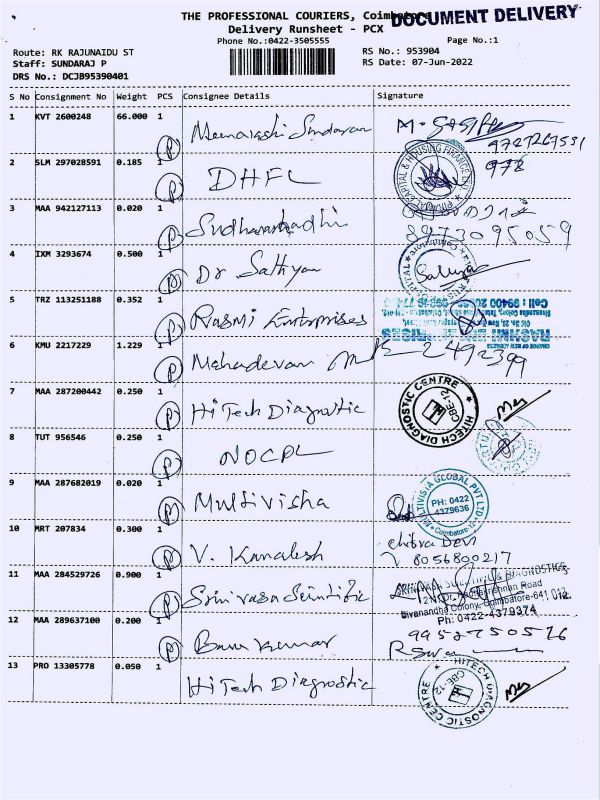 THE PROFESSIONAL COURIERS, Coimbatore
DOCUMENT DELIVERY
Delivery Runsheet - PCX
Phone No.:0422-3505555
Page No.:1
Route: RK RAJUNAIDU ST
RS No.: 953904
Staff: SUNDARAJ P
RS Date: 07-Jun-2022
DRS No.: DCJB95390401
S No Consignment No Weight PCS Consignee Details Signature
1 KVT 2600248 66.000 1 Meenakshi Sundaram
P
2 SLM 297028591 0.185 1 DHFL 978
P
3 MAA 942127113 0.020 1
P 8973095059
4 IXM 3293674 0.500 1 Dr Sathyan
P
5 TRZ 113251188 0.352 1 Rasmi Enterprises
P
6 KMU 2217229 1.229 1 Mahadevan M 2492399
P
7 MAA 287200442 0.250 1 HiTech Diagnostic HITECH DIAGNOSTIC CENTRE CBE-12
P
8 TUT 956546 0.250 1 NOCPL
P
9 MAA 287682019 0.020 1 Multivisha MULTIVISIA GLOBAL PVT LTD PH: 0422 4379636 Coimbatore
P
10 MRT 207834 0.300 1 V. Kamalesh chitra Devi
P 8056800217
11 MAA 284529726 0.900 1 Srinivasa Scintific & DIAGNOSTICS
P Sivanandha Colony, Coimbatore-641 012.
Ph: 0422-4379374
12 MAA 289637100 0.200 1 Banu Kumar
P
13 PRO 13305778 0.050 1 HiTech Diagnostic HITECH DIAGNOSTIC CENTRE CBE-12